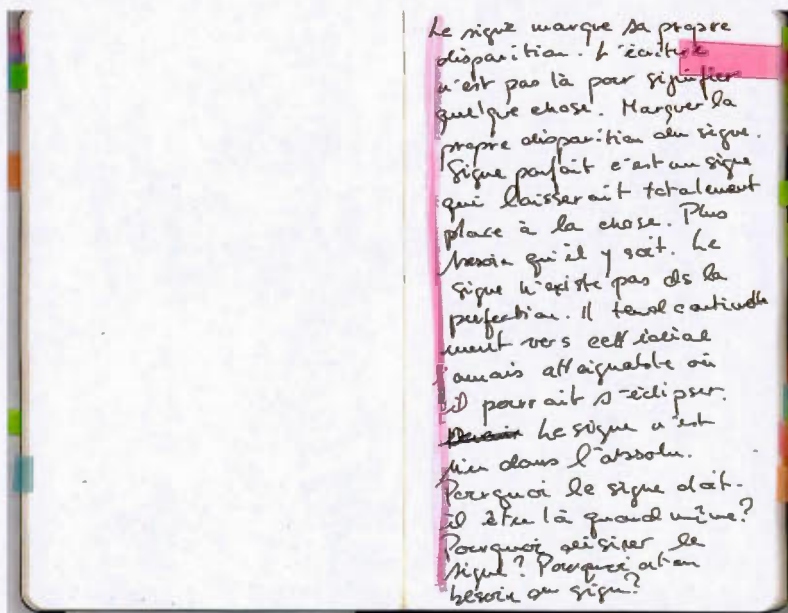 Le signe marque sa propre
disparition. L'écriture
n'est pas là pour signifier
quelque chose. Marquer la
propre disparition du signe.
Signe parfait c'est un signe
qui laisserait totalement
place à la chose. Plus
besoin qu'il y soit. Le
signe n'existe pas ds la
perfection. Il tend continuelle
ment vers cet idéal
jamais attaignable où
il pourrait s'éclipser.
Le signe n'est
rien dans l'absolu.
Pourquoi le signe doit-
il être là quand même?
Pourquoi le
signe? Pourquoi at on
besoin du signe?